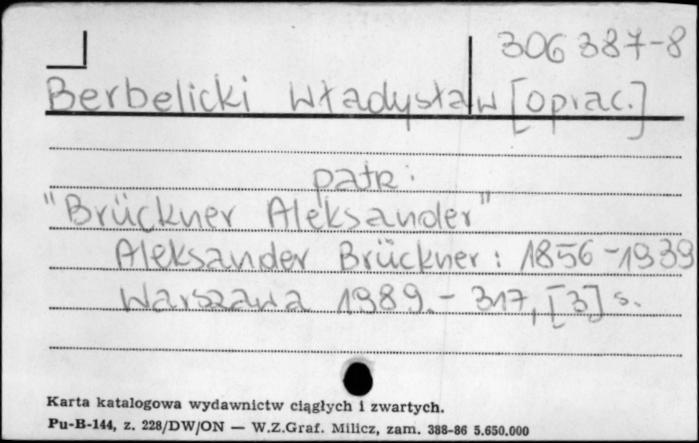 306 387-8
Berbelicki Władysław [oprac.]
patr:
"Brückner Aleksander"
Aleksander Brückner : 1856-1939
Warszawa 1989. - 317, [3] s.
Karta katalogowa wydawnictw ciągłych i zwartych.
Pu-B-144, z. 228/DW/ON — W.Z.Graf. Milicz, zam. 388-86 5.650.000